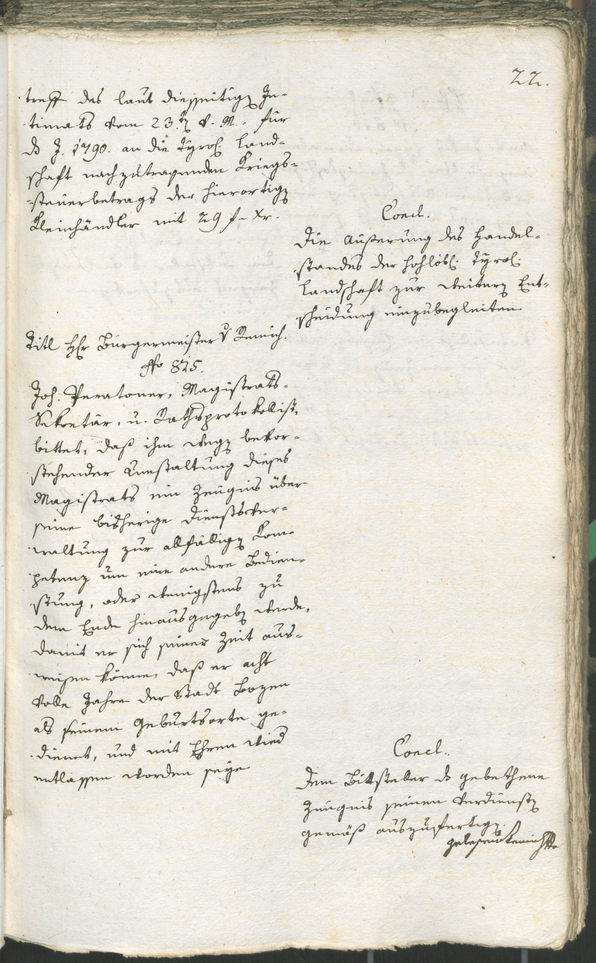 22.
treff des laut diesseitigen In-
timats vom 23ten v. M. für
das J. 1790. an die Tyrol. Land-
schaft nachzutragenden Kriegs-
steuerbetrags der hierortigen
Kleinhändler mit 29 f – Xr.
Concl.
Die Äußerung des Handel-
standes der hochlöbl. Tyrol.
Landschaft zur weitern Ent-
scheidung einzubegleiten
Titl Hr Bürgermeister v Remich.
Nro 825.
Joh. Peratoner, Magistrats-
Sekretär, u. Rathsprotokolist,
bittet, daß ihm wegen bevor-
stehender Umstaltung dieses
Magistrats ein Zeugnis über
seine bisherige Dienstsver-
waltung zur allfälligen Kom-
petenz um eine andere Bedien-
stung, oder wenigstens zu
dem Ende hinausgegeben werde,
damit er sich seiner Zeit aus-
weisen könne, daß er acht
volle Jahre der Stadt Bozen
als seinem Geburtsorte ge-
dienet, und mit Ehren
entlassen worden seye
Concl.
Dem Bittsteller das gebethene
Zeugnis seinen Verdiensten
gemäß auszufertigen.
gelesen